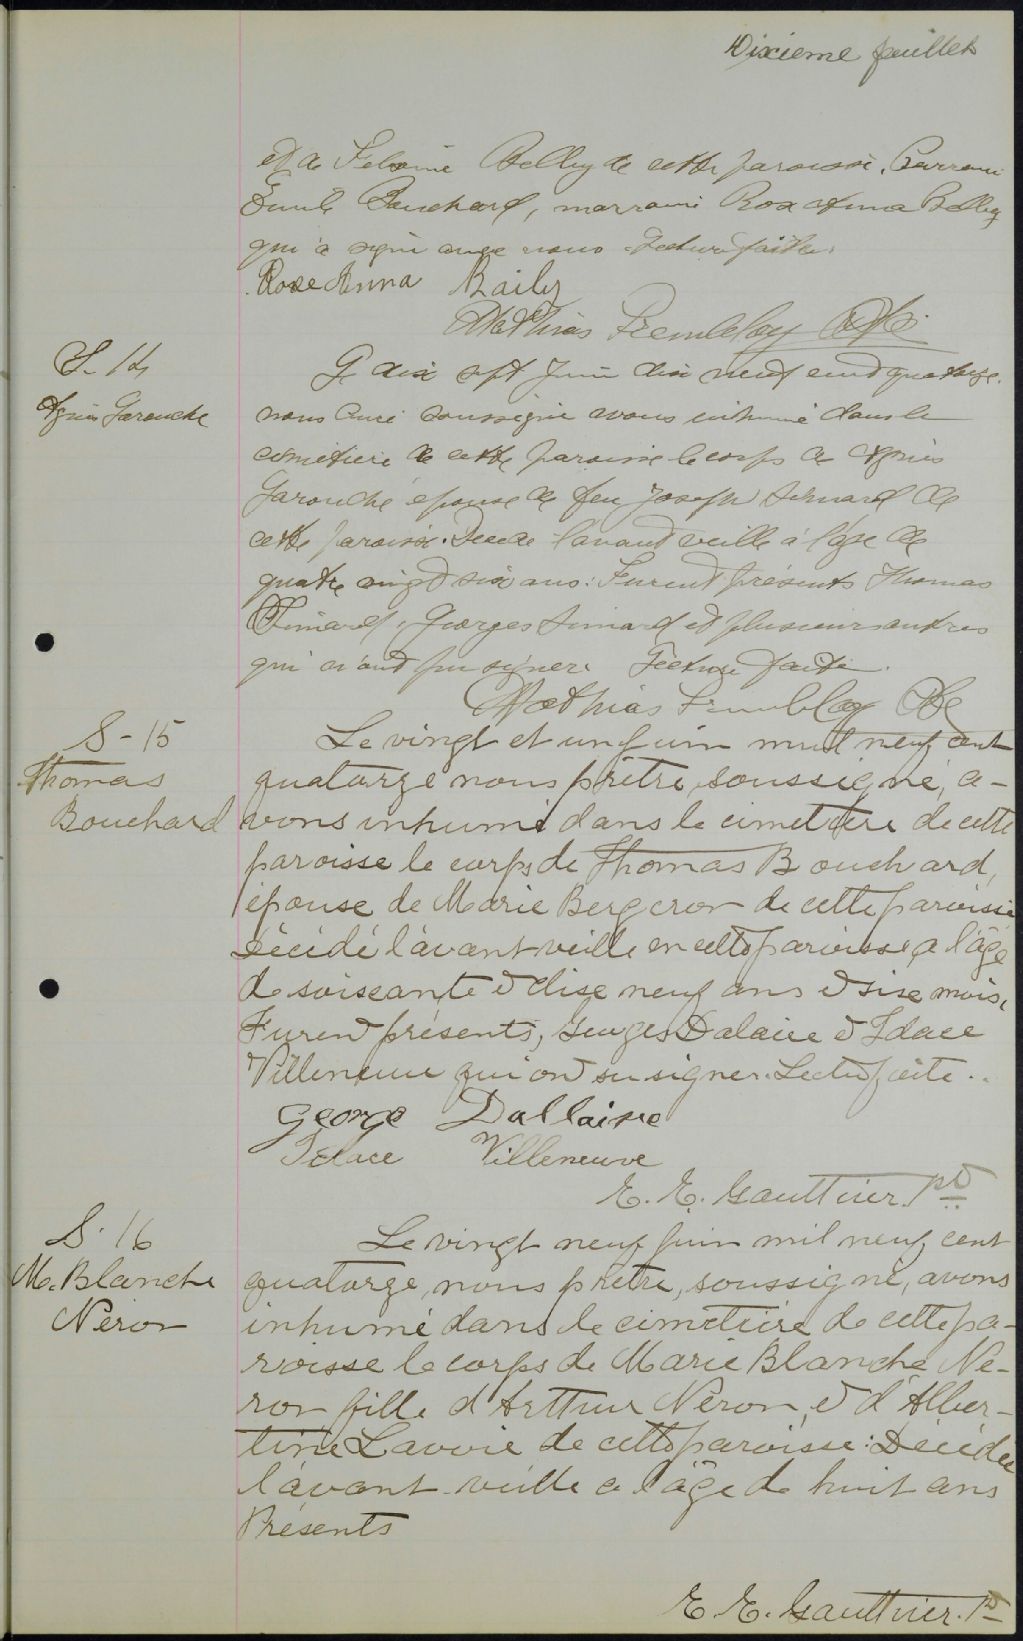 Dixieme feuillet
et de Bellay de cette paroisse. Parrain
Bouchard, marraine Rose Anna Belley
qui a signé avec nous Lecture faite.
Rose Anna Baily
Mathias Tremblay Ptr
S. 14
Agnès Garouche
Le dix sept Juin dix neuf cent quatorze.
nous Curé soussigné avons inhumé dans le
cimetiere de cette paroisse le corps de Agnès
Garouche épouse de feu Joseph Simard de
cette paroisse. Décédée l'avant veille à l'âge de
quatre vingt six ans. Furent présents Thomas
Simard, Georges Simard et plusieurs autres
qui n'ont pu signer. Lecture faite.
Mathias Tremblay Ptr
S-15
Thomas
Bouchard
Le vingt et un juin mil neuf cent
quatorze nous prêtre soussigné, a-
vons inhumé dans le cimetiere de cette
paroisse le corps de Thomas Bouchard,
épouse de Marie Bergeron de cette paroisse
Décidé l'avant veille en cette paroisse, a l'âge
de soiseante et dise neuf ans et sise mois.
Furent présents, Georges Dalaire et Idace
Villeneuve qui ont su signer. Lectu faite..
George Dallaire
Idace Villeneuve
E. E. Gautthier. Pt
S. 16
M. Blanche
Néron
Le vingt neuf juin mil neuf cent
quatorze, nous prêtre, soussigné, avons
inhumé dans le cimetière de cette pa-
roisse le corps de Marie Blanche Né-
ron fille d'Artthur Néron, et d'Alber-
tine Lavoie de cette paroisse: Décidée
l'avant veille a l'âge de huit ans
Présents
E. E. Gautthier. Pt